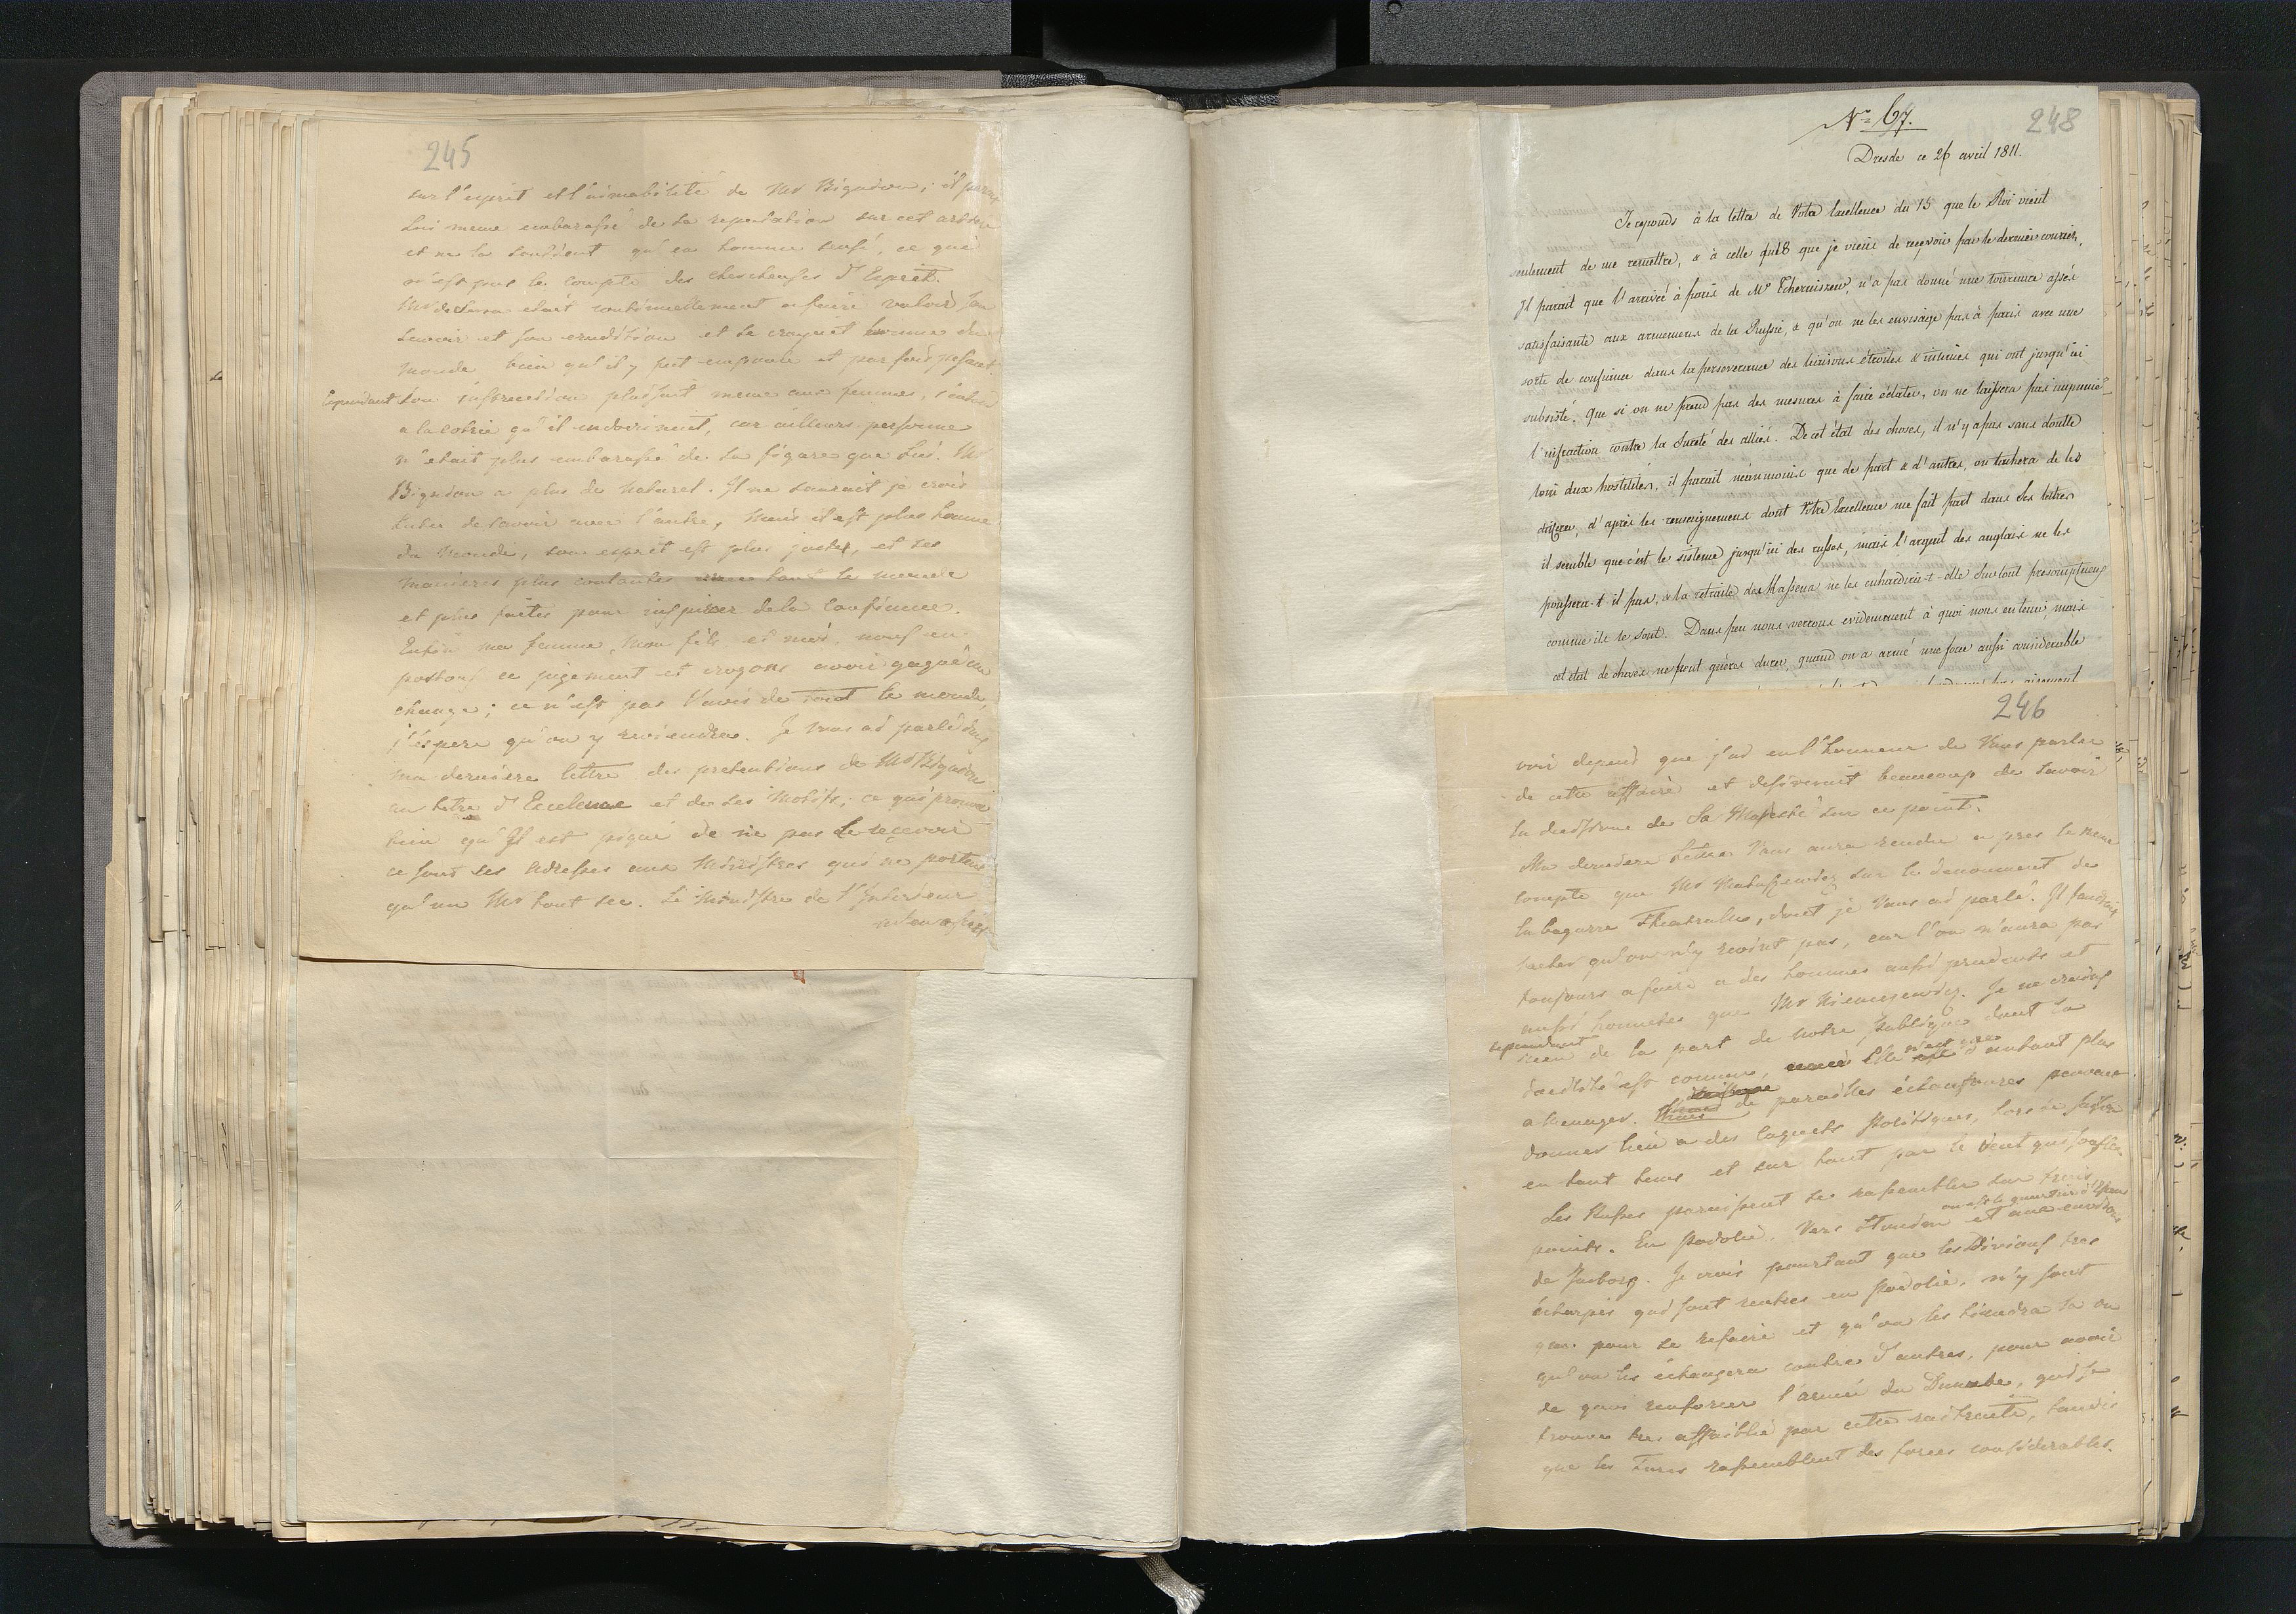 245
sur l'esprit et l'aimabilité de Mr Bignion; il parait
lui meme embarassé de sa reputation sur cet article
et ne la soutient qu'en homme sensé, ce qui
n'est pas le compte des chercheuses d'Esprit.
Mr de Serra etait continuellement a faire valoir son
savoir et son erudition et se croyait homme du
monde bien qu'il y fut empreunté et par fois pesant
Cependant son instruction plaisait meme aux femmes, s'entend
a la coterie qu'il endoctrinait, car ailleurs personne
n'etait plus embarassé de sa figure que lui. Mr
Bignion a plus de naturel. Il ne saurait je crois
luter de savoir avec l'autre, mais il est plus homme
du monde, son esprit est plus juste, et ses
manieres plus coulantes avec tout le monde
et plus faites pour inspirer de la confiance.
Enfin ma femme, mon fils et moi nous en
portons ce jugement et croyons avoir gagné au
change; ce n'est pas l'avis de tout le monde,
j'espere qu'on y reviendra. Je vous ai parlé dans
ma derniere lettre des pretentions de Mr Bignion
au titre d'Excelence et de ses motifs; ce qui prouve
bien qu'Il est piqué de ne pas le recevoir
ce sont ses adresses aux Ministres qui ne portent
qu'un Mr tout sec. Le Ministre de l'Interieur
No 67.
248
Dresde ce 26 avril 1811.
Je reponds à la lettre de Votre Excellence du 15 que le Roi vient
seulement de me remettre, & à celle du 18 que je viens de recevoir par le dernier courier,
Il parait que l'arrivée à paris de Mr Tcherniszew, n'a pas donné une tournure assés
satisfaisante aux armemens de la Russie, & qu'on ne les envisage pas à paris avec une
sorte de confiance dans la perseverance des liaisons étroites & intimes qui ont jusqu'ici
subsisté. Que si on ne prend pas des mesures à faire éclater, on ne laissera pas impunie
l'infraction contre la Sureté des alliés. De cet état des choses, il n'y a pas sans doutte
loin aux hostilités, il parait néanmoins que de part & d'autres, on tachera de les
differer, d'après les renseignemens dont Votre Excellence me fait part dans Ses lettres
il semble que c'est le sisteme jusqu'ici des russes, mais l'argent des anglais ne les
poussera-t-il pas, & la retraite de Massena ne les enhardira-t-elle surtout presomptueux
comme ils le sont. Dans peu nous verrons evidemment à quoi nous en tenir, mais
cet état de choses ne peut guères durer, quand on a armé une force aussi considerable
246
voir depend que j'ai eu l'honneur de Vous parler
de cette affaire et desireroit beaucoup de savoir
la decision de Sa Majesté sur ce point.
Ma derniere lettre Vous aura rendu a peu pres le meme
compte que Mr Matuszewicz sur le denoument de
la bagarre Theatrale, dont je Vous ai parlé. Il faudrait
tacher qu'on n'y revint pas, car l'on n'aura pas
toujours a faire a des hommes aussi prudents et
aussi honnetes que Mr Niemcewicz. Je ne crains
cependant
rien de la part de notre publique dont la
docilité est connue, Elle n'est que d'autant plus
a menager. de pareilles échaufourés peuvent
donner lieu a des caquets politiques,
en tout tems et sur tout par le vent qui soufle.
Les Russes paraissent se rassembler sur trois
points. En podolie, Vers
et aux environs
de Jurborg. Je crois pourtant que les Divisions tres
écharpés qui sont rentres en podolie, n'y sont
que pour se refaire et qu'on les tiendra la ou
qu'on les échangera contre d'autres, pour avoir
de quoi renforcer l'armée du Danube, qui se
trouve tres affaiblie par cette rectraite, tandis
que les Turcs rassemblent des forces considerables.